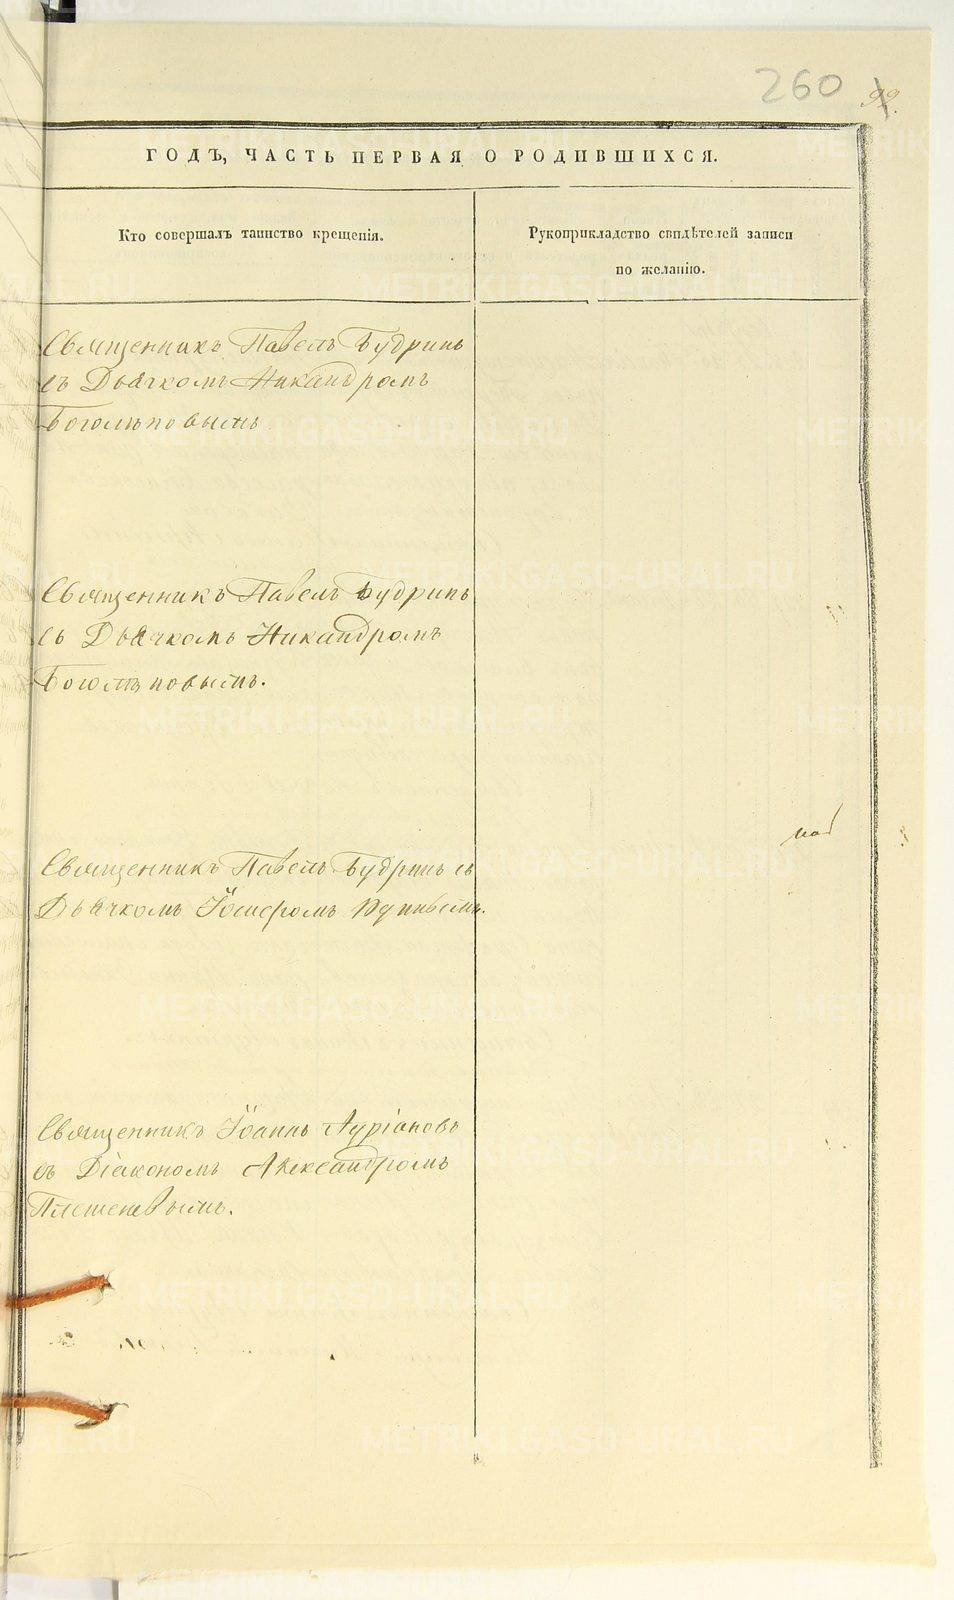 260
99.
ГОДЪ, ЧАСТЬ ПЕРВАЯ О РОДИВШИХСЯ.
Кто совершалъ таинство крещенія.
Рукоприкладство свидѣтелей записи
по желанію.
Священникъ Павелъ Будринъ
съ Дьячкомъ Никандромъ
Боголѣповымъ
Священникъ Павелъ Будринъ
съ Дьячкомъ Никандромъ
Боголѣповымъ.
Священникъ Павелъ Будринъ съ
Дьячкомъ Іосифомъ
Священникъ Іоаннъ
съ Діакономъ Александромъ
METRIKI.GASO-URAL.RU